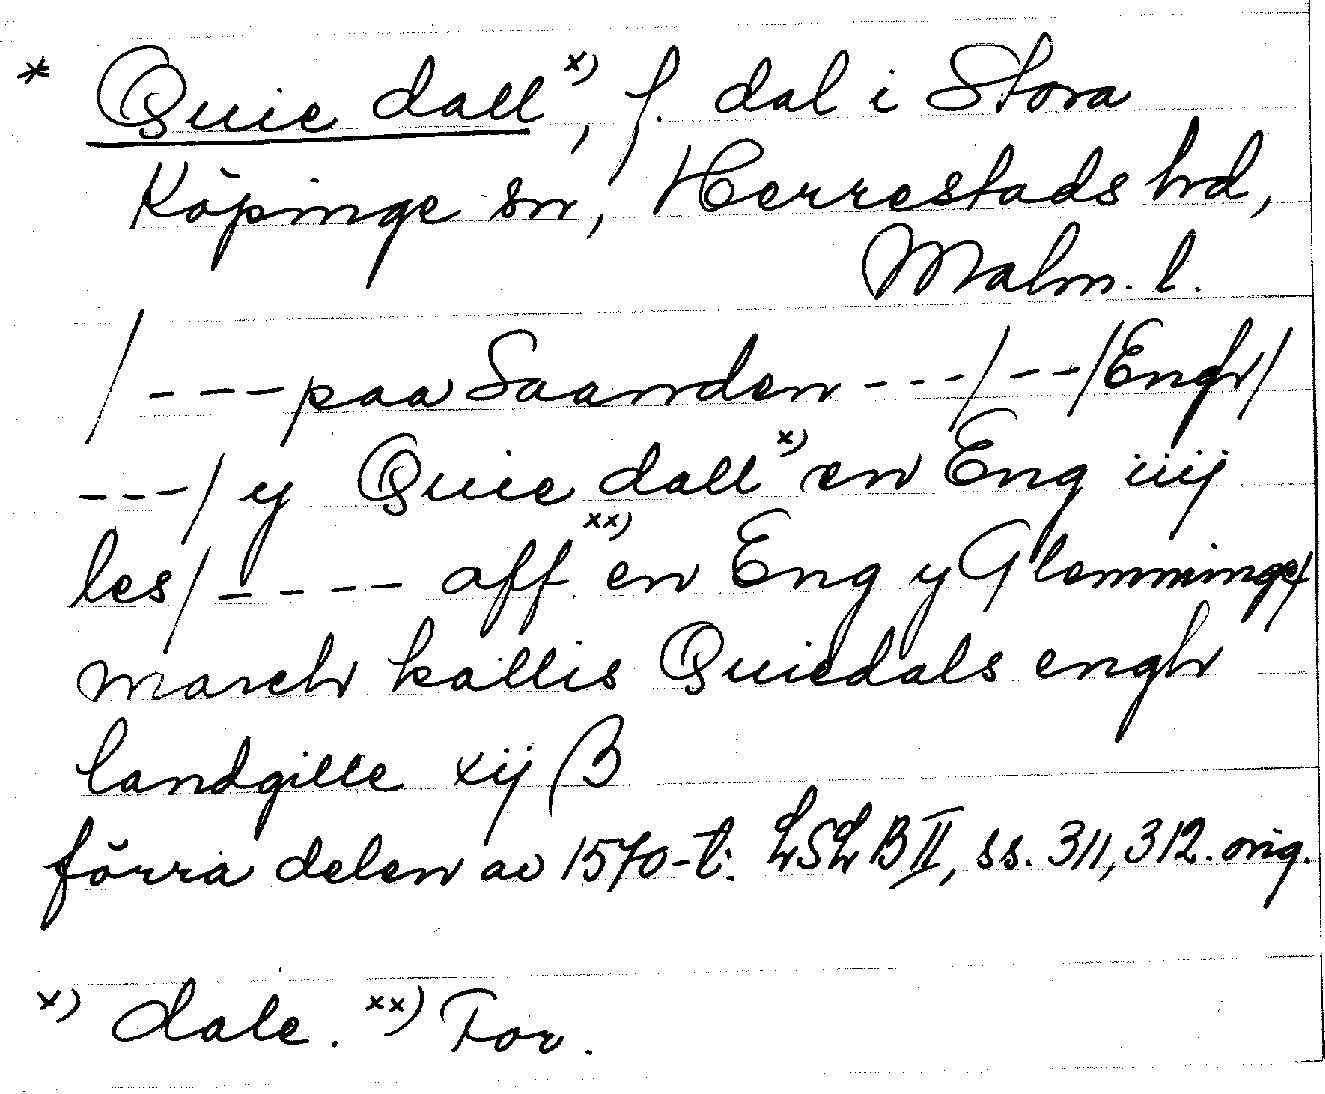 * Quie dall x), f. dal i Stora
Köpinge sn, Herrestads hd,
Malm. l.
/ --- paa Saanden ---/ --/Engh/
---/ y Quie dall x) en Eng iiij
les/ ---- aff xx) en Eng y Glemminge/
march kallis Quiedals engh
landgille xij β
förra delen av 1570-t. LSLB II, ss. 311, 312. orig.
x) dale. xx) For.